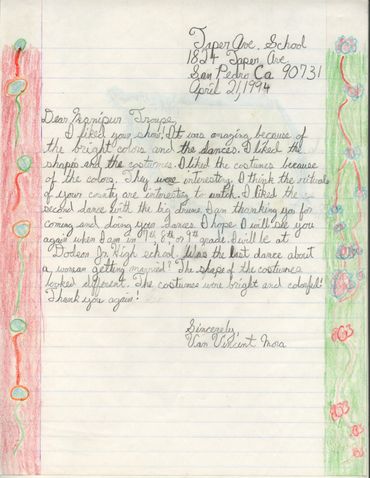 Taper Ave. School
1824 Taper Ave
San Pedro Ca 90731
April 21, 1994
Dear Troupe,
I liked your show! It was amazing because of
the bright colors and the dances. I liked the
shapes and the costumes. I liked the costumes because
of the colors. They were interesting. I think the rituals
of your county are interesting to watch. I liked the
second dance with the big drums. I am thanking you for
coming and doing your dances. I hope I will see you
again when I am in 7th, 8th or 9th grade! I will be at
Dodson Jr. High school. Was the last dance about
a woman getting married? The shape of the costumes
looked different. The costumes were bright and colorful!
Thank you again!
Sincerely,
Van Vincent Mora